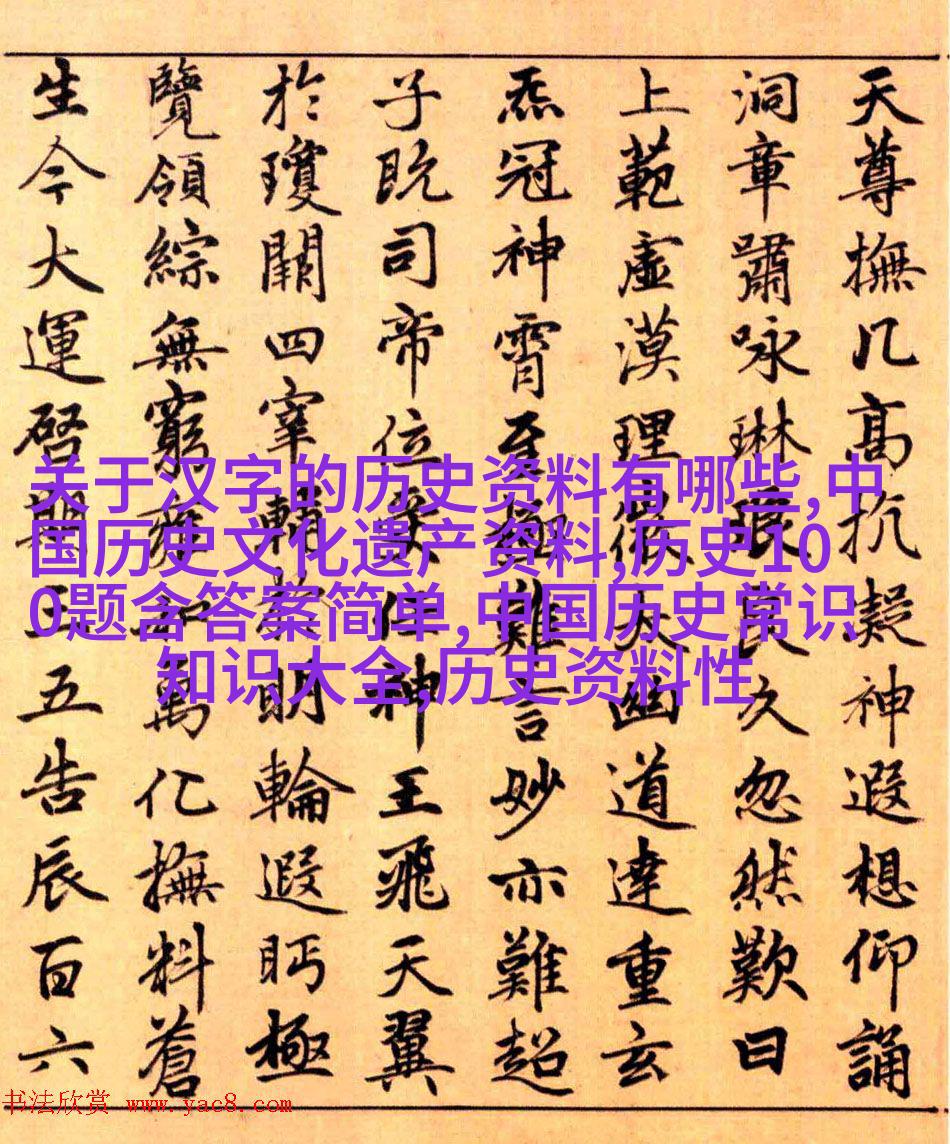 天尊撫几高抗凝神遐想仰誦
洞章嘯咏琳良久忽然歎曰
上範虛漠理微太幽道達重玄
炁冠神霄至極難言妙亦難超
子既司帝位任神王飛天翼
於瓊闕四宰輔明輪遐眄極
覽領綜無窮萬化撫料蒼
生今大運啓期三五告辰百六
关于汉字的历史资料有哪些,中
国历史文化遗产资料,历史10
0题含答案简单,中国历史常识
知识大全,历史资料性
书法欣赏 www.yac8.com